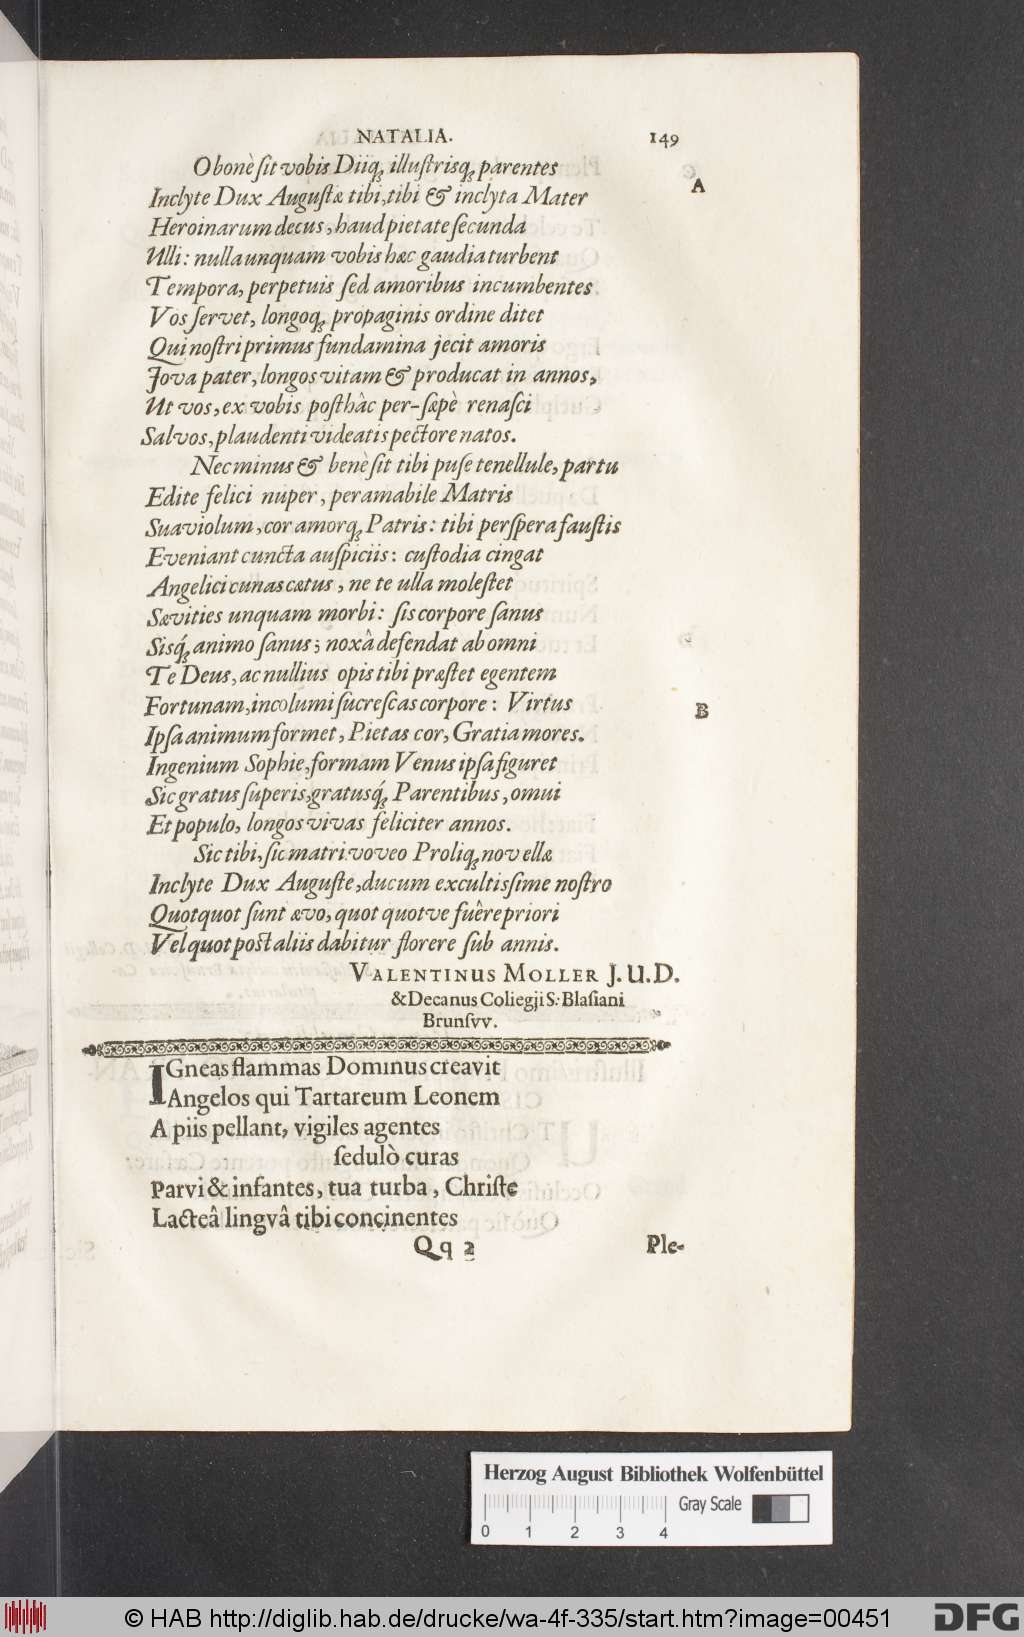 NATALIA. 149
O bonè ſit vobis Diiq́; illuſtrisq́; parentes
A
Inclyte Dux Auguſtæ tibi, tibi & inclyta Mater
Heroinarum decus, haud pietate ſecunda
Ulli: nulla unquam vobis hæc gaudia turbent
Tempora, perpetuis ſed amoribus incumbentes
Vos ſervet, longoq́; propaginis ordine ditet
Qui noſtri primus fundamina jecit amoris
Jova pater, longos vitam & producat in annos,
Ut vos, ex vobis poſthâc per-ſæpè renaſci
Salvos, plaudenti videatis pectore natos.
Nec minus & benè ſit tibi puſe tenellule, partu
Edite felici nuper, peramabile Matris
Suaviolum, cor amorq́; Patris: tibi perſpera fauſtis
Eveniant cuncta auſpiciis: cuſtodia cingat
Angelici cunas cætus, ne te ulla moleſtet
Sævities unquam morbi: ſis corpore ſanus
Sisq́; animo ſanus; noxâ defendat ab omni
Te Deus, ac nullius opis tibi præſtet egentem
Fortunam, incolumi ſucreſcas corpore: Virtus
B
Ipſa animum formet, Pietas cor, Gratia mores.
Ingenium Sophie, formam Venus ipſa figuret
Sic gratus ſuperis, gratusq́; Parentibus, omui
Et populo, longos vivas feliciter annos.
Sic tibi, ſic matri voveo Proliq́; novellæ
Inclyte Dux Auguſte, ducum excultisſime noſtro
Quotquot ſunt ævo, quot quotve fuêre priori
Vel quot poſt aliis dabitur florere ſub annis.
VALENTINUS MOLLER J.U.D.
& Decanus Coliegji S: Blaſiani
Brunſvv.
IGneas flammas Dominus creavit
Angelos qui Tartareum Leonem
A piis pellant, vigiles agentes
ſedulò curas
Parvi & infantes, tua turba, Chriſte
Lacteâ lingvâ tibi concinentes
Qq 2 Ple-
Herzog August Bibliothek Wolfenbüttel
Gray Scale
0 1 2 3 4
© HAB http://diglib.hab.de/drucke/wa-4f-335/start.htm?image=00451
DFG